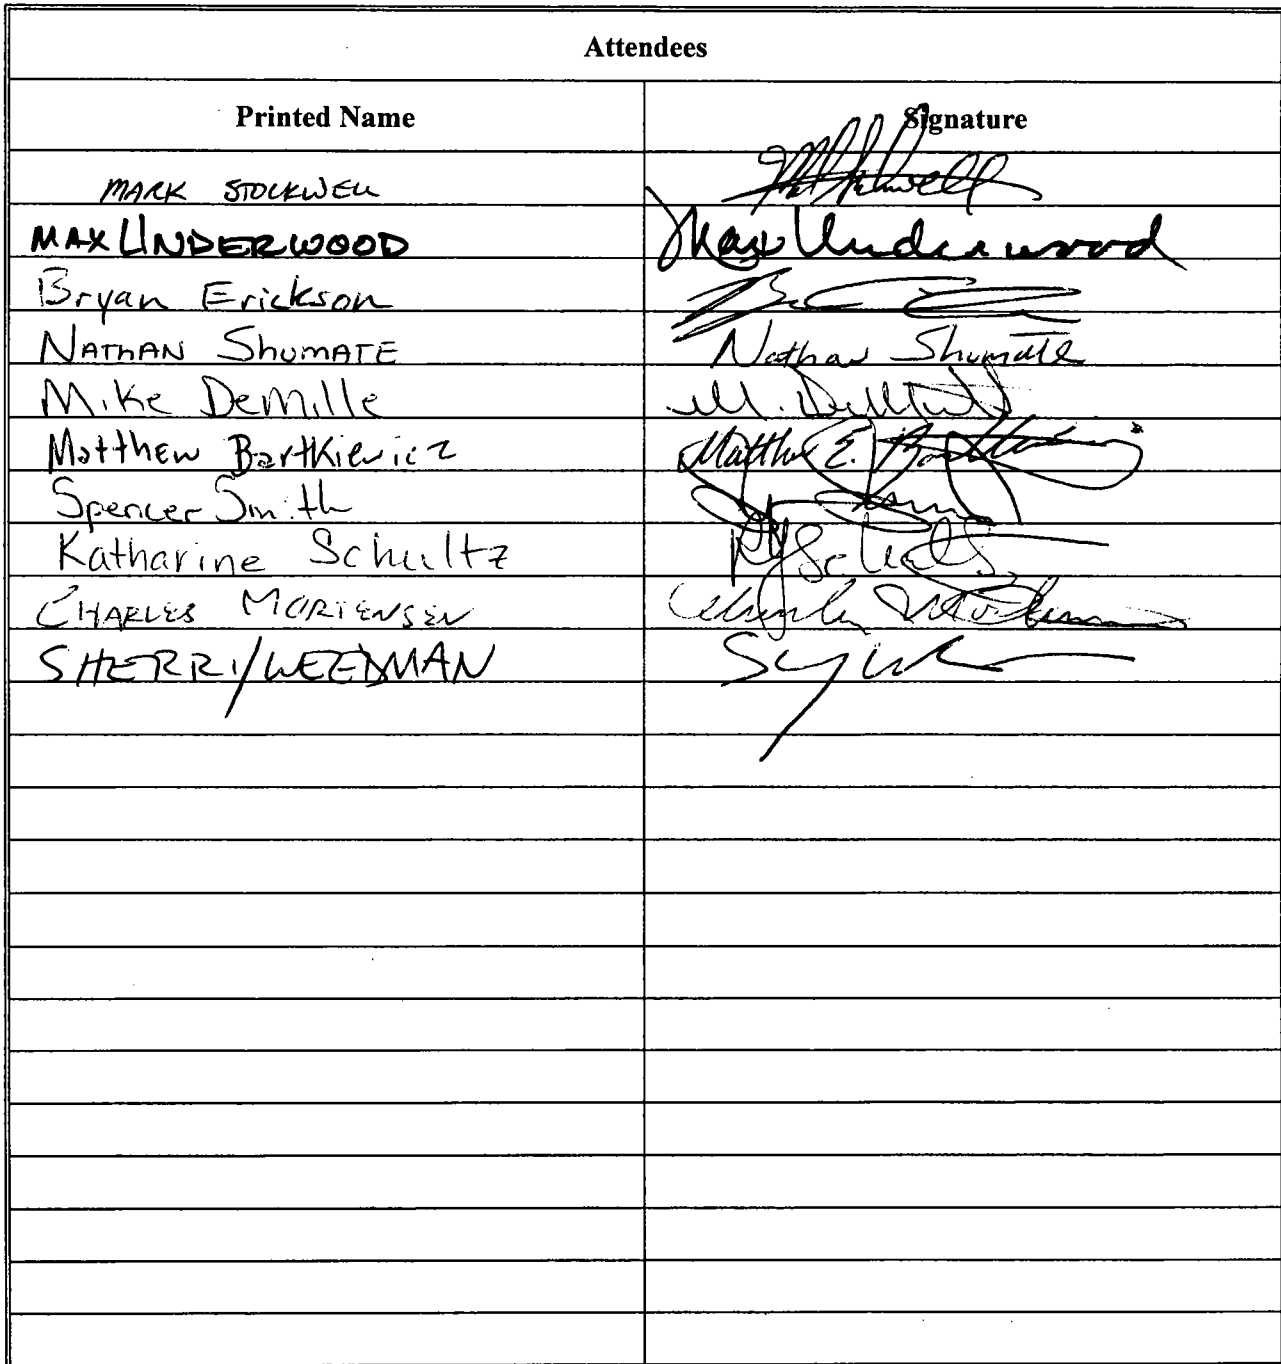 Attendees
Printed Name Signature
MARK STOCKWELL
MAX UNDERWOOD Max Underwood
Bryan Erickson
NATHAN SHUMATE Nathan Shumate
Mike DeMille M. DeMille
Matthew Bartkiewicz Matthew E. Bartkiewicz
Spencer Smith
Katharine Schultz
CHARLES MORTENSEN
SHERRI WEEDMAN